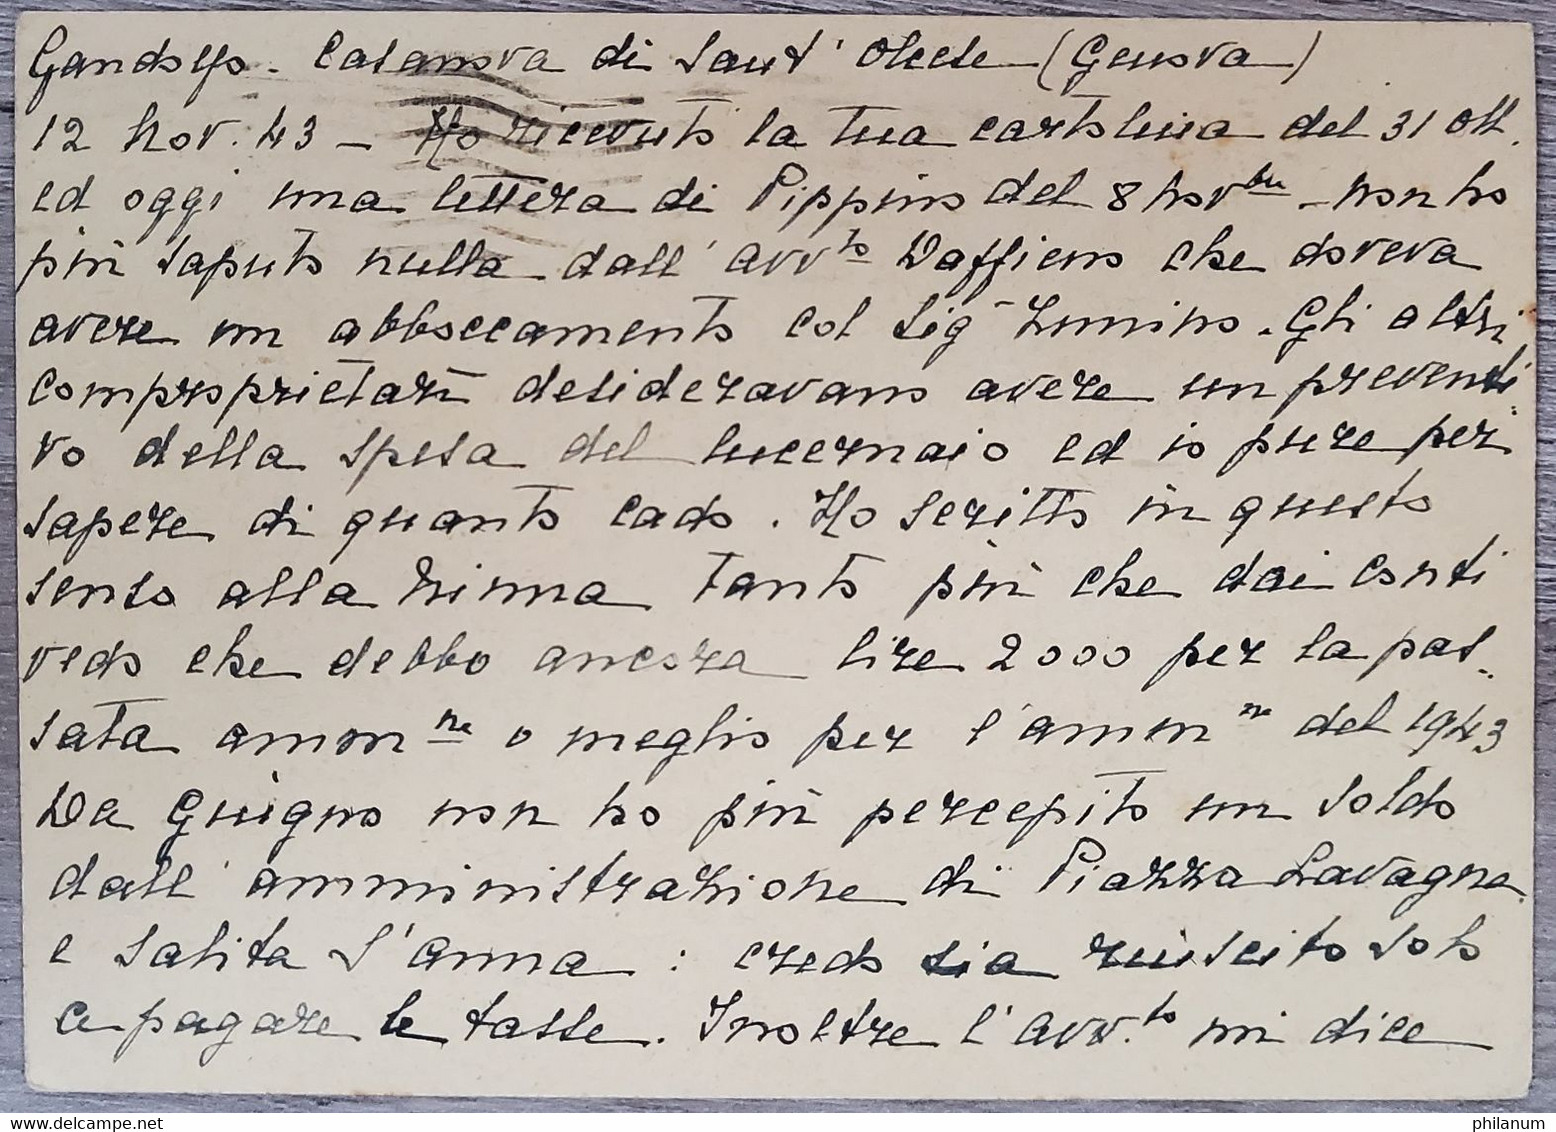 Gandolfo - Casanova di Sant' Olcese (Genova)
12 Nov. 43 - Ho ricevuto la tua cartolina del 31 Ott.
ed oggi una lettera di Pippino del 8 Novbre - Non ho
più saputo nulla dall' avvto che doveva
avere un abboccamento col Sig Zunino. Gli altri
comproprietari desideravano avere un preventi
vo della spesa del lucernaio ed io pure per
sapere di quanto cado. Ho scritto in questo
senso alla tanto più che dai conti
vedo che debbo ancora lire 2000 per la pas-
sata ammne o meglio per l'ammne del 1943
Da Giugno non ho più percepito un soldo
dall' amministrazione di Piazza Lavagna
e Salita S'Anna: credo sia riuscito solo
a pagare le tasse. Inoltre l'avv.to mi dice
philanum